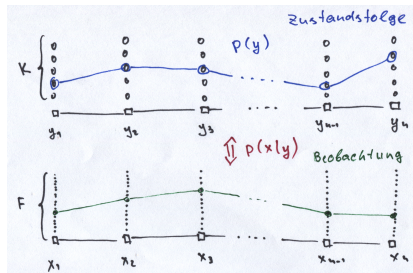 Zustandsfolge
K
p(y)
y₁ y₂ y₃ .... yₙ₋₁ yₙ
p(x|y)
Beobachtung
F
x₁ x₂ x₃ .... xₙ₋₁ xₙ